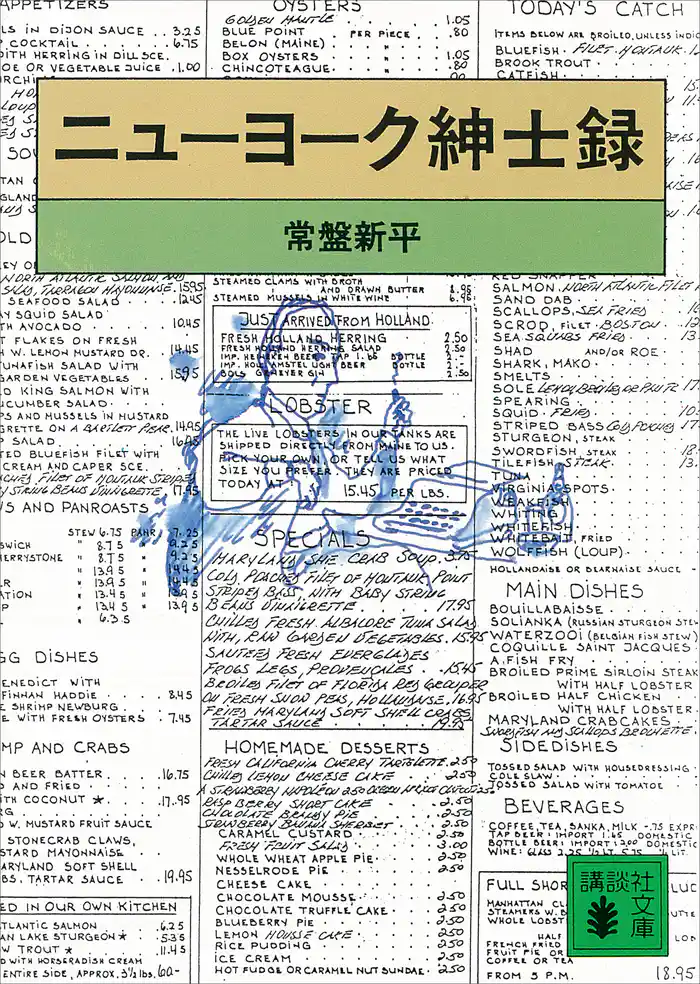 APPETIZERS
LS IN DIJON SAUCE . . 3.25
COCKTAIL . . . 6.75
HERRING IN DILL SCE.
OE OR VEGETABLE JUICE . 1.00
OYSTERS
GOLDEN MANTLE . . 1.05
BLUE POINT PER PIECE . .80
BELON (MAINE) . "
BOX OYSTERS " 1.05
CHINCOTEAGUE . " .80
TODAY'S CATCH
ITEMS BELOW ARE BROILED, UNLESS INDIC
BLUEFISH
BROOK TROUT
CATFISH
ニューヨーク紳士録
常盤新平
NORTH ATLANTIC SALMON, AND
15.95
SEAFOOD SALAD . . 12.45
SQUID SALAD
TH AVOCADO . . 10.45
T FLAKES ON FRESH
H W. LEMON MUSTARD DR. . 14.45
TUNAFISH SALAD WITH
GARDEN VEGETABLES . . 15.95
D KING SALMON WITH
CUCUMBER SALAD
PS AND MUSSELS IN MUSTARD
GRETTE ON A BARTLETT PEAR. 14.95
P SALAD . . 16.95
TED BLUEFISH FILET WITH
CREAM AND CAPER SCE.
17.95
S AND PANROASTS
STEW 6.75 PANR. 7.25
SWICH " 8.75 " 9.25
HERRYSTONE " 8.75 " 9.25
" 13.95 " 14.45
R " 13.95 " 14.45
ATION " 13.95 " 13.95
P " 13.45 " 13.95
" 6.35
GG DISHES
ENEDICT WITH
FINNAN HADDIE . . . 8.45
E SHRIMP NEWBURG
E WITH FRESH OYSTERS . 7.45
MP AND CRABS
N BEER BATTER . . . 16.75
D AND FRIED
ITH COCONUT ★ . . . 17.95
RG
D W. MUSTARD FRUIT SAUCE
STONECRAB CLAWS,
STARD MAYONNAISE
ARYLAND SOFT SHELL
BS. TARTAR SAUCE . . 19.95
ED IN OUR OWN KITCHEN
TLANTIC SALMON . . 6.25
AN LAKE STURGEON ★ . 5.35
W TROUT ★ . . . 11.45
D WITH HORSERADISH CREAM
ENTIRE SIDE, APPROX. 3½ lbs. 60-
STEAMED CLAMS WITH BROTH
AND DRAWN BUTTER 8.95
STEAMED MUSSELS IN WHITE WINE . 6.95
JUST ARRIVED FROM HOLLAND:
FRESH HOLLAND HERRING 2.50
FRESH HOLLAND HERRING SALAD 2.50
IMP. HEINEKEN BEER TAP 1.65 BOTTLE 2.-
IMP. HOLL AMSTEL LIGHT BEER BOTTLE 2.-
BOLS GENEVER GIN 2.50
LOBSTER
THE LIVE LOBSTERS IN OUR TANKS ARE
SHIPPED DIRECTLY FROM MAINE TO US.
PICK YOUR OWN, OR TELL US WHAT
SIZE YOU PREFER. THEY ARE PRICED
TODAY AT: 15.45 PER LBS.
SPECIALS
MARYLAND SHE CRAB SOUP. 3.75
COLD POACHED FILET OF MONTAUK POINT
STRIPED BASS, WITH BABY STRING
BEANS VINAIGRETTE . . . 17.95
CHILLED FRESH ALBACORE TUNA SALAD
WITH, RAW GARDEN VEGETABLES. 15.95
SAUTEED FRESH EVERGLADES
FROGS LEGS, PROVENCALES . . 15.45
BROILED FILET OF FLORIDA RED GROUPER
ON FRESH SNOW PEAS, HOLLANDAISE. 16.95
FRIED MARYLAND SOFT SHELL CRABS
TARTAR SAUCE . . . 19.95
HOMEMADE DESSERTS
FRESH CALIFORNIA CHERRY TARTELETTE. 2.50
CHILLED LEMON CHEESE CAKE . . 2.50
RASPBERRY SHORT CAKE . . 2.50
CHOCOLATE BRANDY PIE . . 2.50
STRAWBERRY BANANA SHERBET . 2.50
CARAMEL CUSTARD . . . 2.50
FRESH FRUIT SALAD . . . 3.00
WHOLE WHEAT APPLE PIE . . 2.50
NESSELRODE PIE . . . 2.50
CHEESE CAKE
CHOCOLATE MOUSSE . . . 2.50
CHOCOLATE TRUFFLE CAKE . . 2.50
BLUEBERRY PIE . . . 2.50
LEMON MOUSSE CAKE . . . 2.50
RICE PUDDING . . . 2.50
ICE CREAM . . . 2.50
HOT FUDGE OR CARAMEL NUT SUNDAE . 2.50
RED SNAPPER
SALMON, NORTH ATLANTIC FILET
SAND DAB
SCALLOPS, SEA FRIED
SCROD, FILET - BOSTON
SEA SQUIBS FRIED
SHAD AND/OR ROE
SHARK, MAKO
SMELTS
SOLE
SPEARING
SQUID - FRIED
STRIPED BASS
STURGEON, STEAK
SWORDFISH, STEAK
TILEFISH STEAK
TUNA
VIRGINIA SPOTS
WEAKFISH
WHITING
WHITEFISH
WHITEBAIT, FRIED
WOLFFISH (LOUP)
HOLLANDAISE OR BEARNAISE SAUCE
MAIN DISHES
BOUILLABAISSE
SOLIANKA (RUSSIAN STURGEON STEW
WATERZOOI (BELGIAN FISH STEW)
COQUILLE SAINT JACQUES
A. FISH FRY
BROILED PRIME SIRLOIN STEAK
WITH HALF LOBSTER
BROILED HALF CHICKEN
WITH HALF LOBSTER
MARYLAND CRABCAKES
SWORDFISH AND SCALLOPS BROCHETTE
SIDEDISHES
TOSSED SALAD WITH HOUSEDRESSING
COLE SLAW
TOSSED SALAD WITH TOMATOE
BEVERAGES
COFFEE, TEA, SANKA, MILK -.75 EXPR
TAP BEER: IMPORT 1.65 DOMESTIC
BOTTLE BEER: IMPORT 2.00 DOMESTIC
WINE: GLASS 2.25
FULL SHOR
MANHATTAN CL
STEAMERS W. B
WHOLE LOBST
HALF
FRENCH FRIED
FRUIT PIE OR
COFFEE OR TEA
FROM 5 P.M. 18.95
講談社
文庫